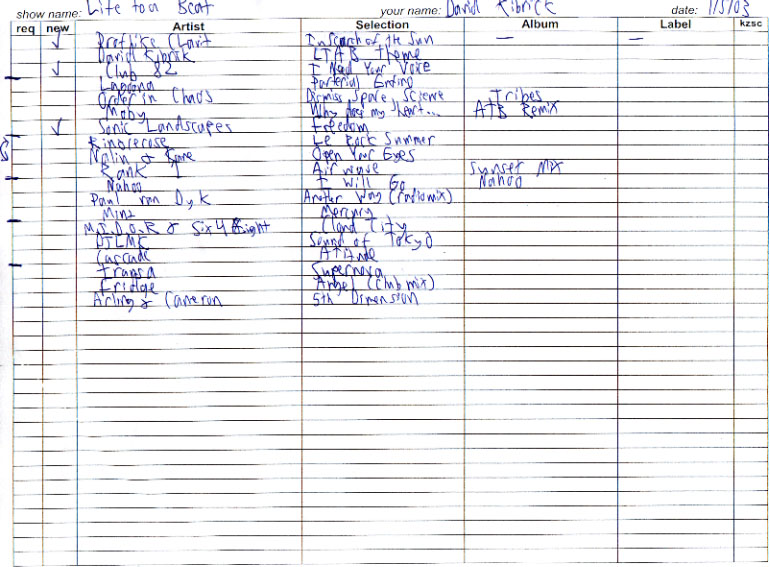 show name: Life to a Beat your name: David Kibrick date: 1/5/03
req new Artist Selection Album Label kzsc
✓ In Search of the Sun — —
David Kibrick LTAB Theme
✓ Club 82 I Need Your Voice
Lagoona Ending
Order in Chaos Dismiss Spare Science Tribes
Moby Why Does my heart... ATB Remix
✓ Sonic Landscapes Freedom
Rinocerose Le Rock Summer
Nalin & Kane Open Your Eyes
Rank 1 Airwave Sunset Mix
Nahoo I Will Go Nahoo
Paul van Dyk Another Way (radiomix)
Minz Mercury
M.I.D.O.R & Six4Eight Cloud City
DJLMK Sound of Tokyo
Cascade
Transa Supernova
Fridge Angel (club mix)
Arling & Cameron 5th Dimension